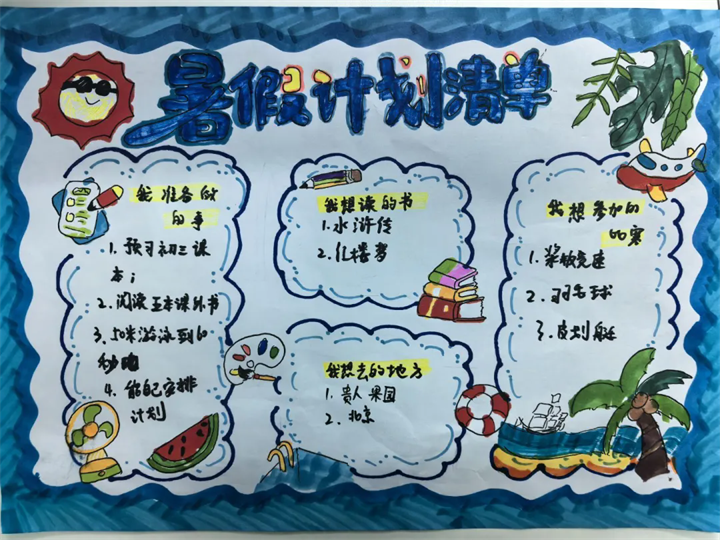 暑假计划清单
我准备做
的事
1. 预习初三课
本;
2. 阅读五本课外书
3. 50米游泳到60
秒内
4. 能自己安排
计划
我想读的书
1. 水浒传
2. 红楼梦
我想去的地方
1. 贵人果园
2. 北京
我想参加的
比赛
1. 桨板竞速
2. 羽毛球
3. 皮划艇